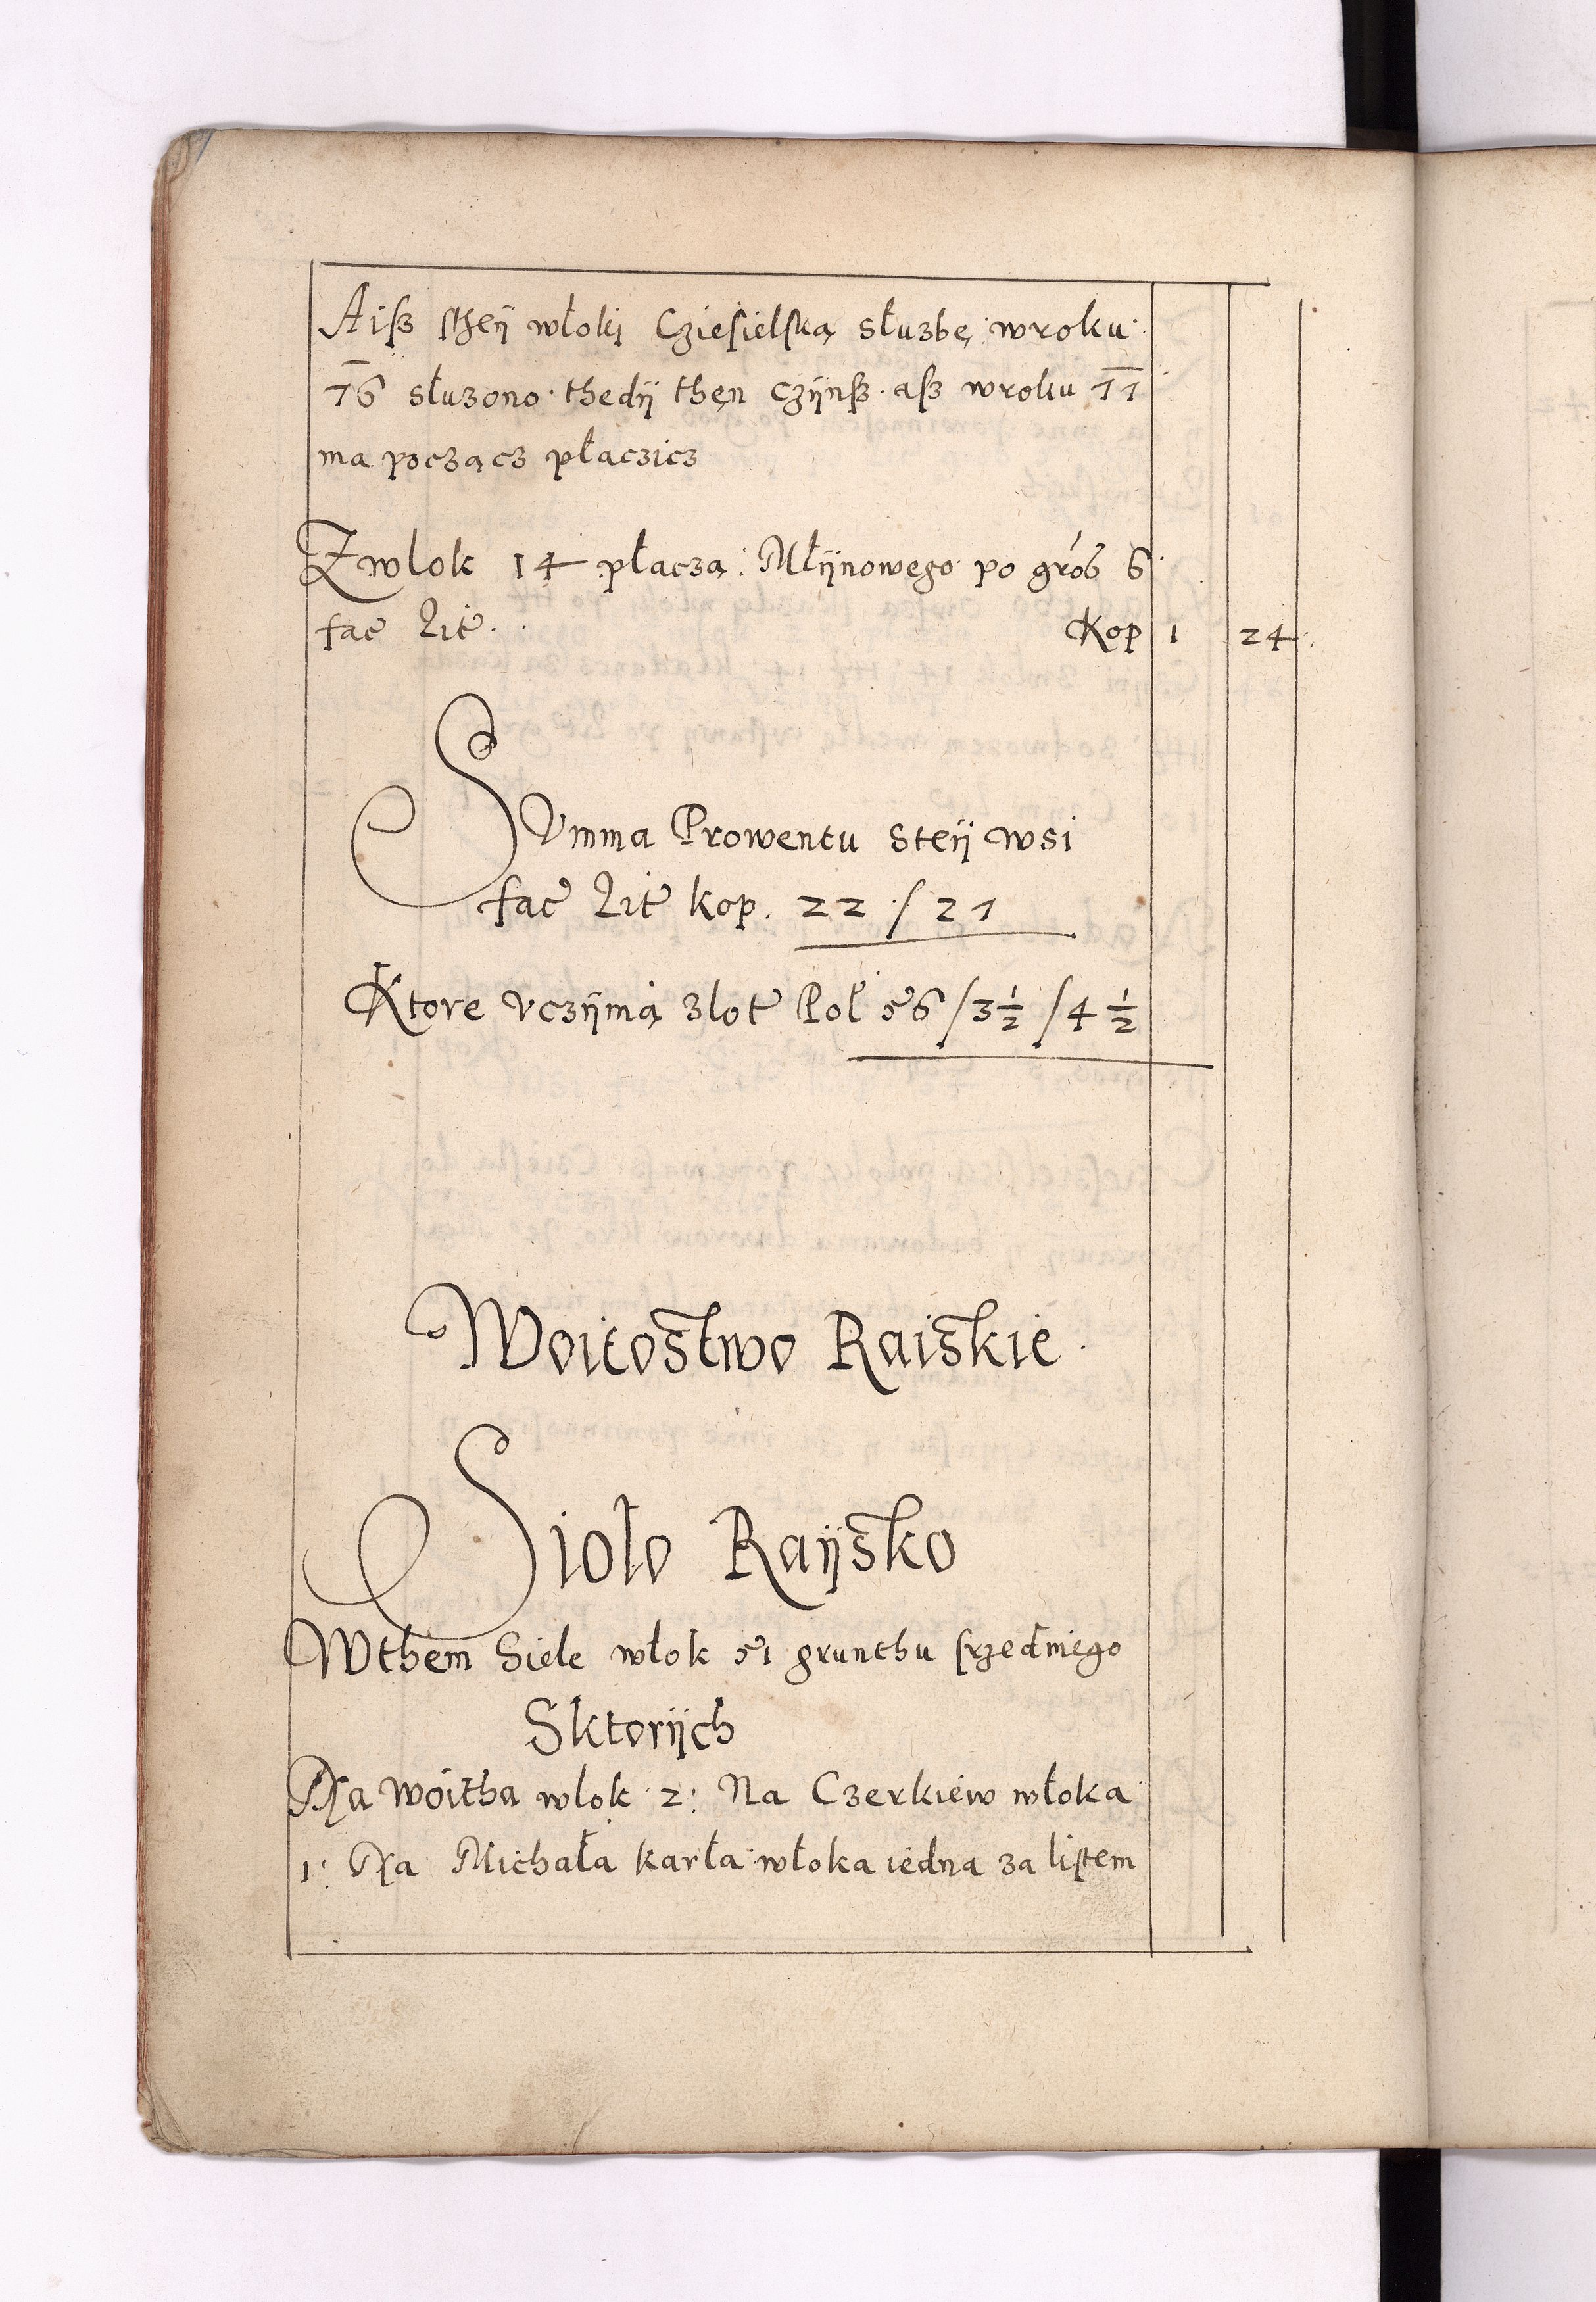 Aiſz ſtheÿ włoki Czieſielſką służbę wroku
76 służono thedÿ then czÿnſz aſz wroku 77
ma począcz płaczicz
Z wlok 14 płaczą Młÿnowego po gros 6
fac Lit. Kop 1 24
Summa Prowentu steÿ wsi
fac Lit kop. 22 / 21
Ktore vczÿmą zlot Pol 56 / 3½ / 4½
Woitostwo Raiskie
Sioło Raÿsko
Wthem Siele włok 51 grunthu ſrzedniego
Sktorÿch
Na woitha wlok 2: Na Czerkiew włoka
1: Na Michała karła włoka iedna za liſtem